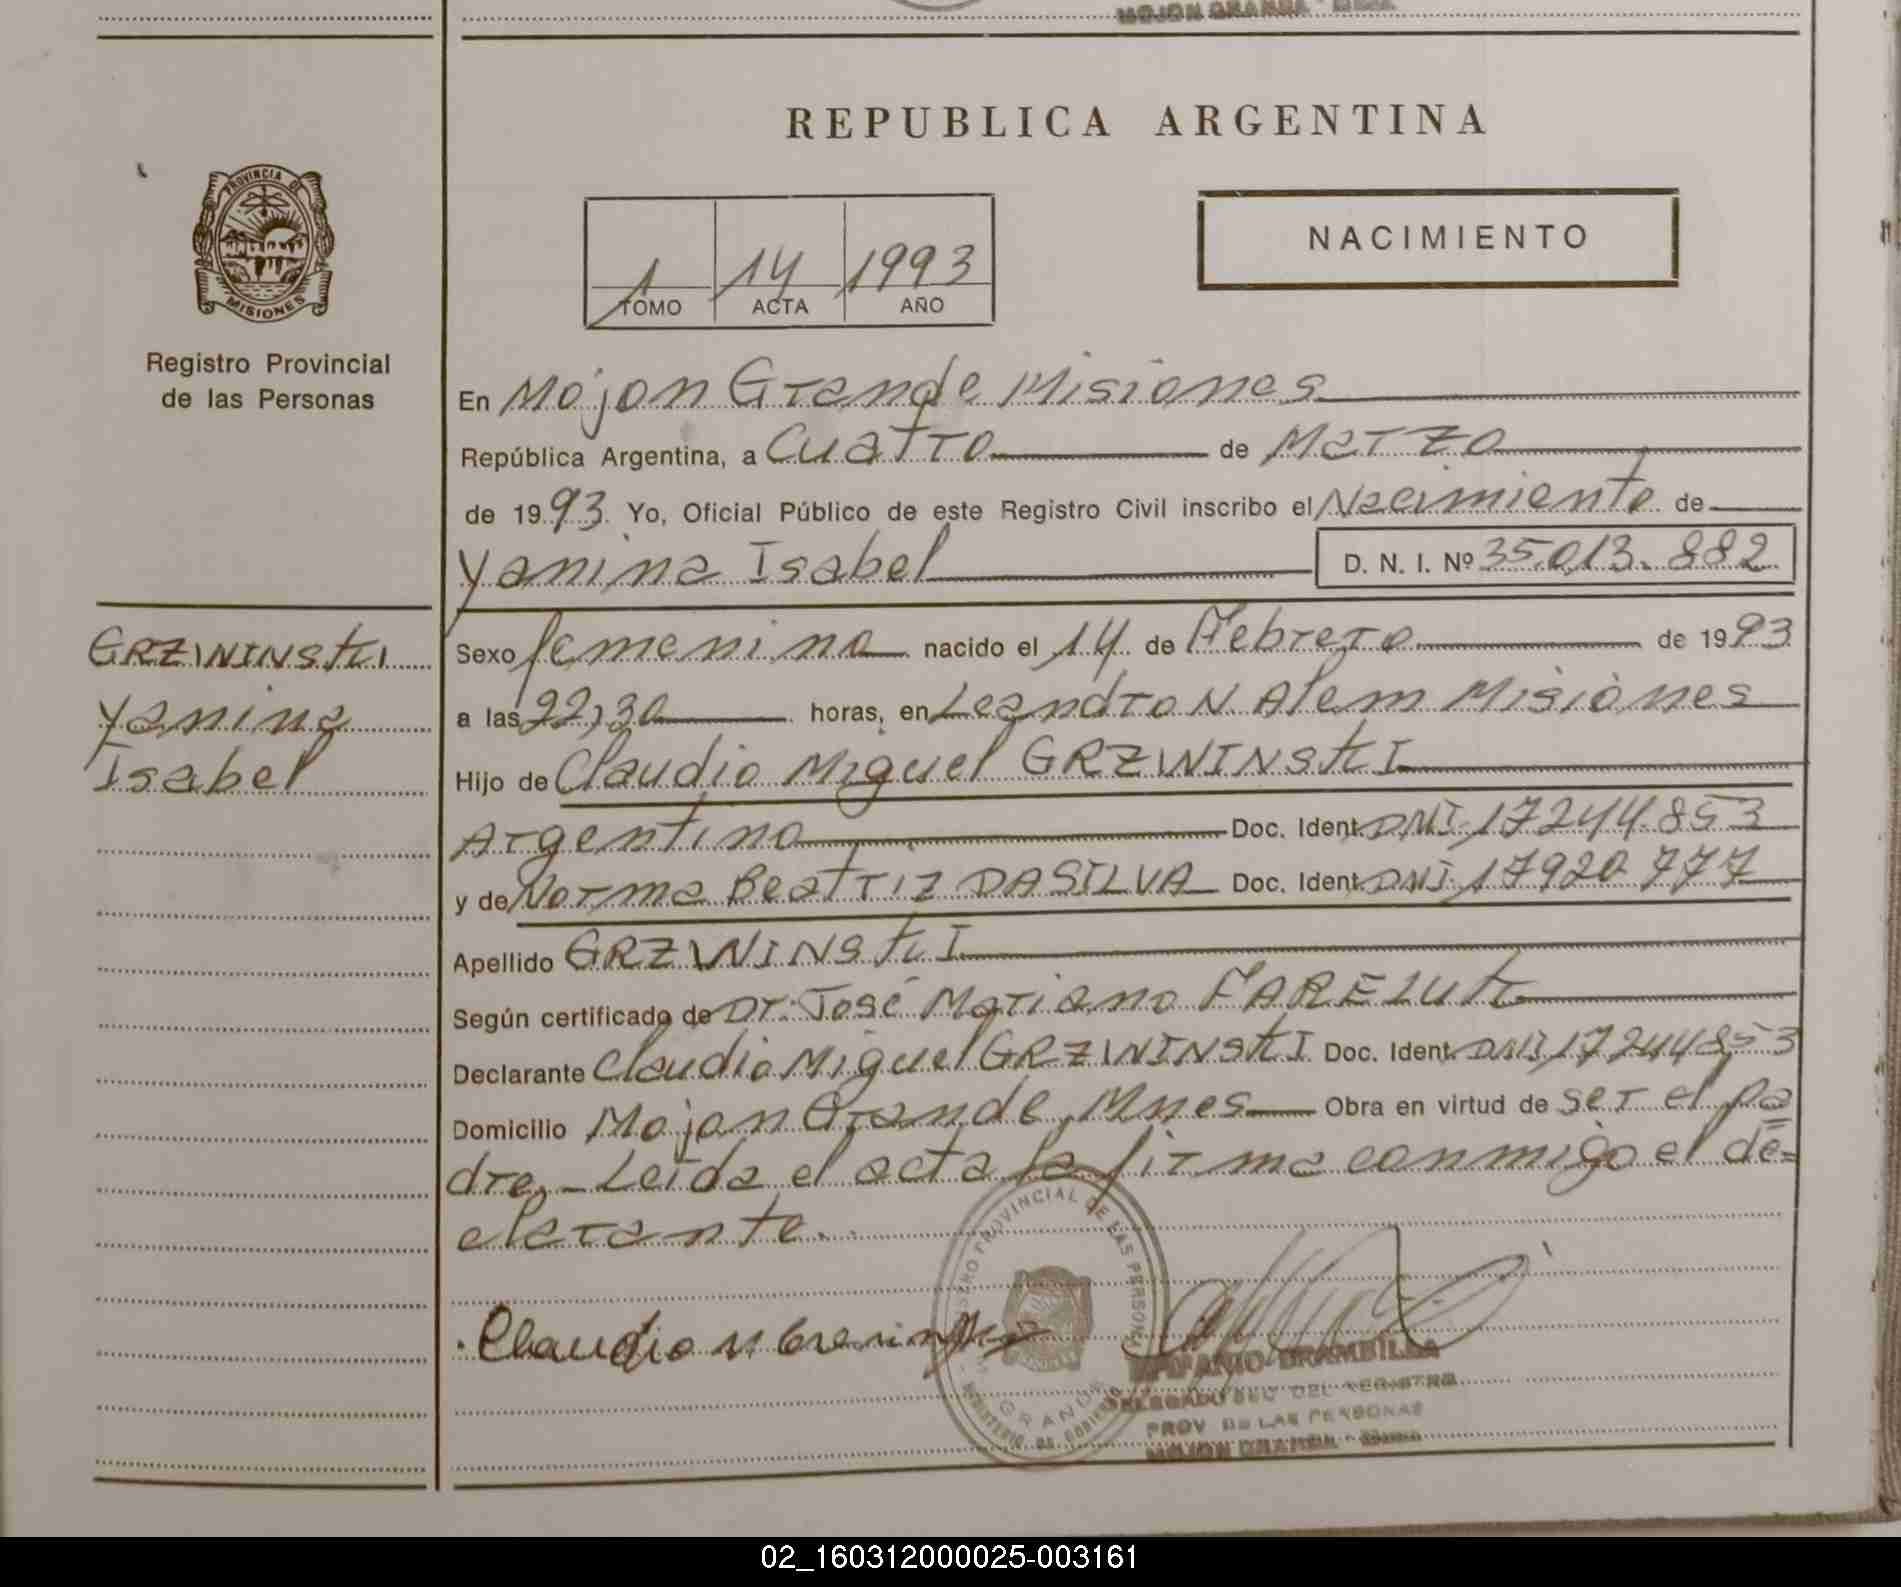 MOJON GRANDE
REPUBLICA ARGENTINA
PROVINCIA DE
MISIONES
Registro Provincial
de las Personas
1 14 1993
TOMO ACTA AÑO
NACIMIENTO
En Mojon Grande Misiones
República Argentina, a Cuatro de Marzo
de 1993. Yo, Oficial Público de este Registro Civil inscribo el Nacimiento de
Yanina Isabel D. N. I. Nº 35.013.882
GRZWINSKI
Yanina
Isabel
Sexo femenino nacido el 14 de Febrero de 1993
a las 22,30 horas, en Leandro N. Alem Misiones
Hijo de Claudio Miguel GRZWINSKI
Argentino Doc. Ident. DNI. 17244.853
y de Norma Beatriz DASILVA Doc. Ident. DNI. 17920777
Apellido GRZWINSKI
Según certificado de Dr. José Mariano
Declarante Claudio Miguel GRZWINSKI Doc. Ident. DNI 17244853
Domicilio Mojon Grande, Mnes Obra en virtud de ser el pa
dre.- Leída el acta la firma conmigo el de=
clarante.
REGISTRO PROVINCIAL DE LAS PERSONAS
GRANDE
MINISTERIO DE GOBIERNO
Claudio M
BRAMBILLA
DELEGADO DEL REGISTRO
PROV DE LAS PERSONAS
MOJON GRANDE
02_160312000025-003161